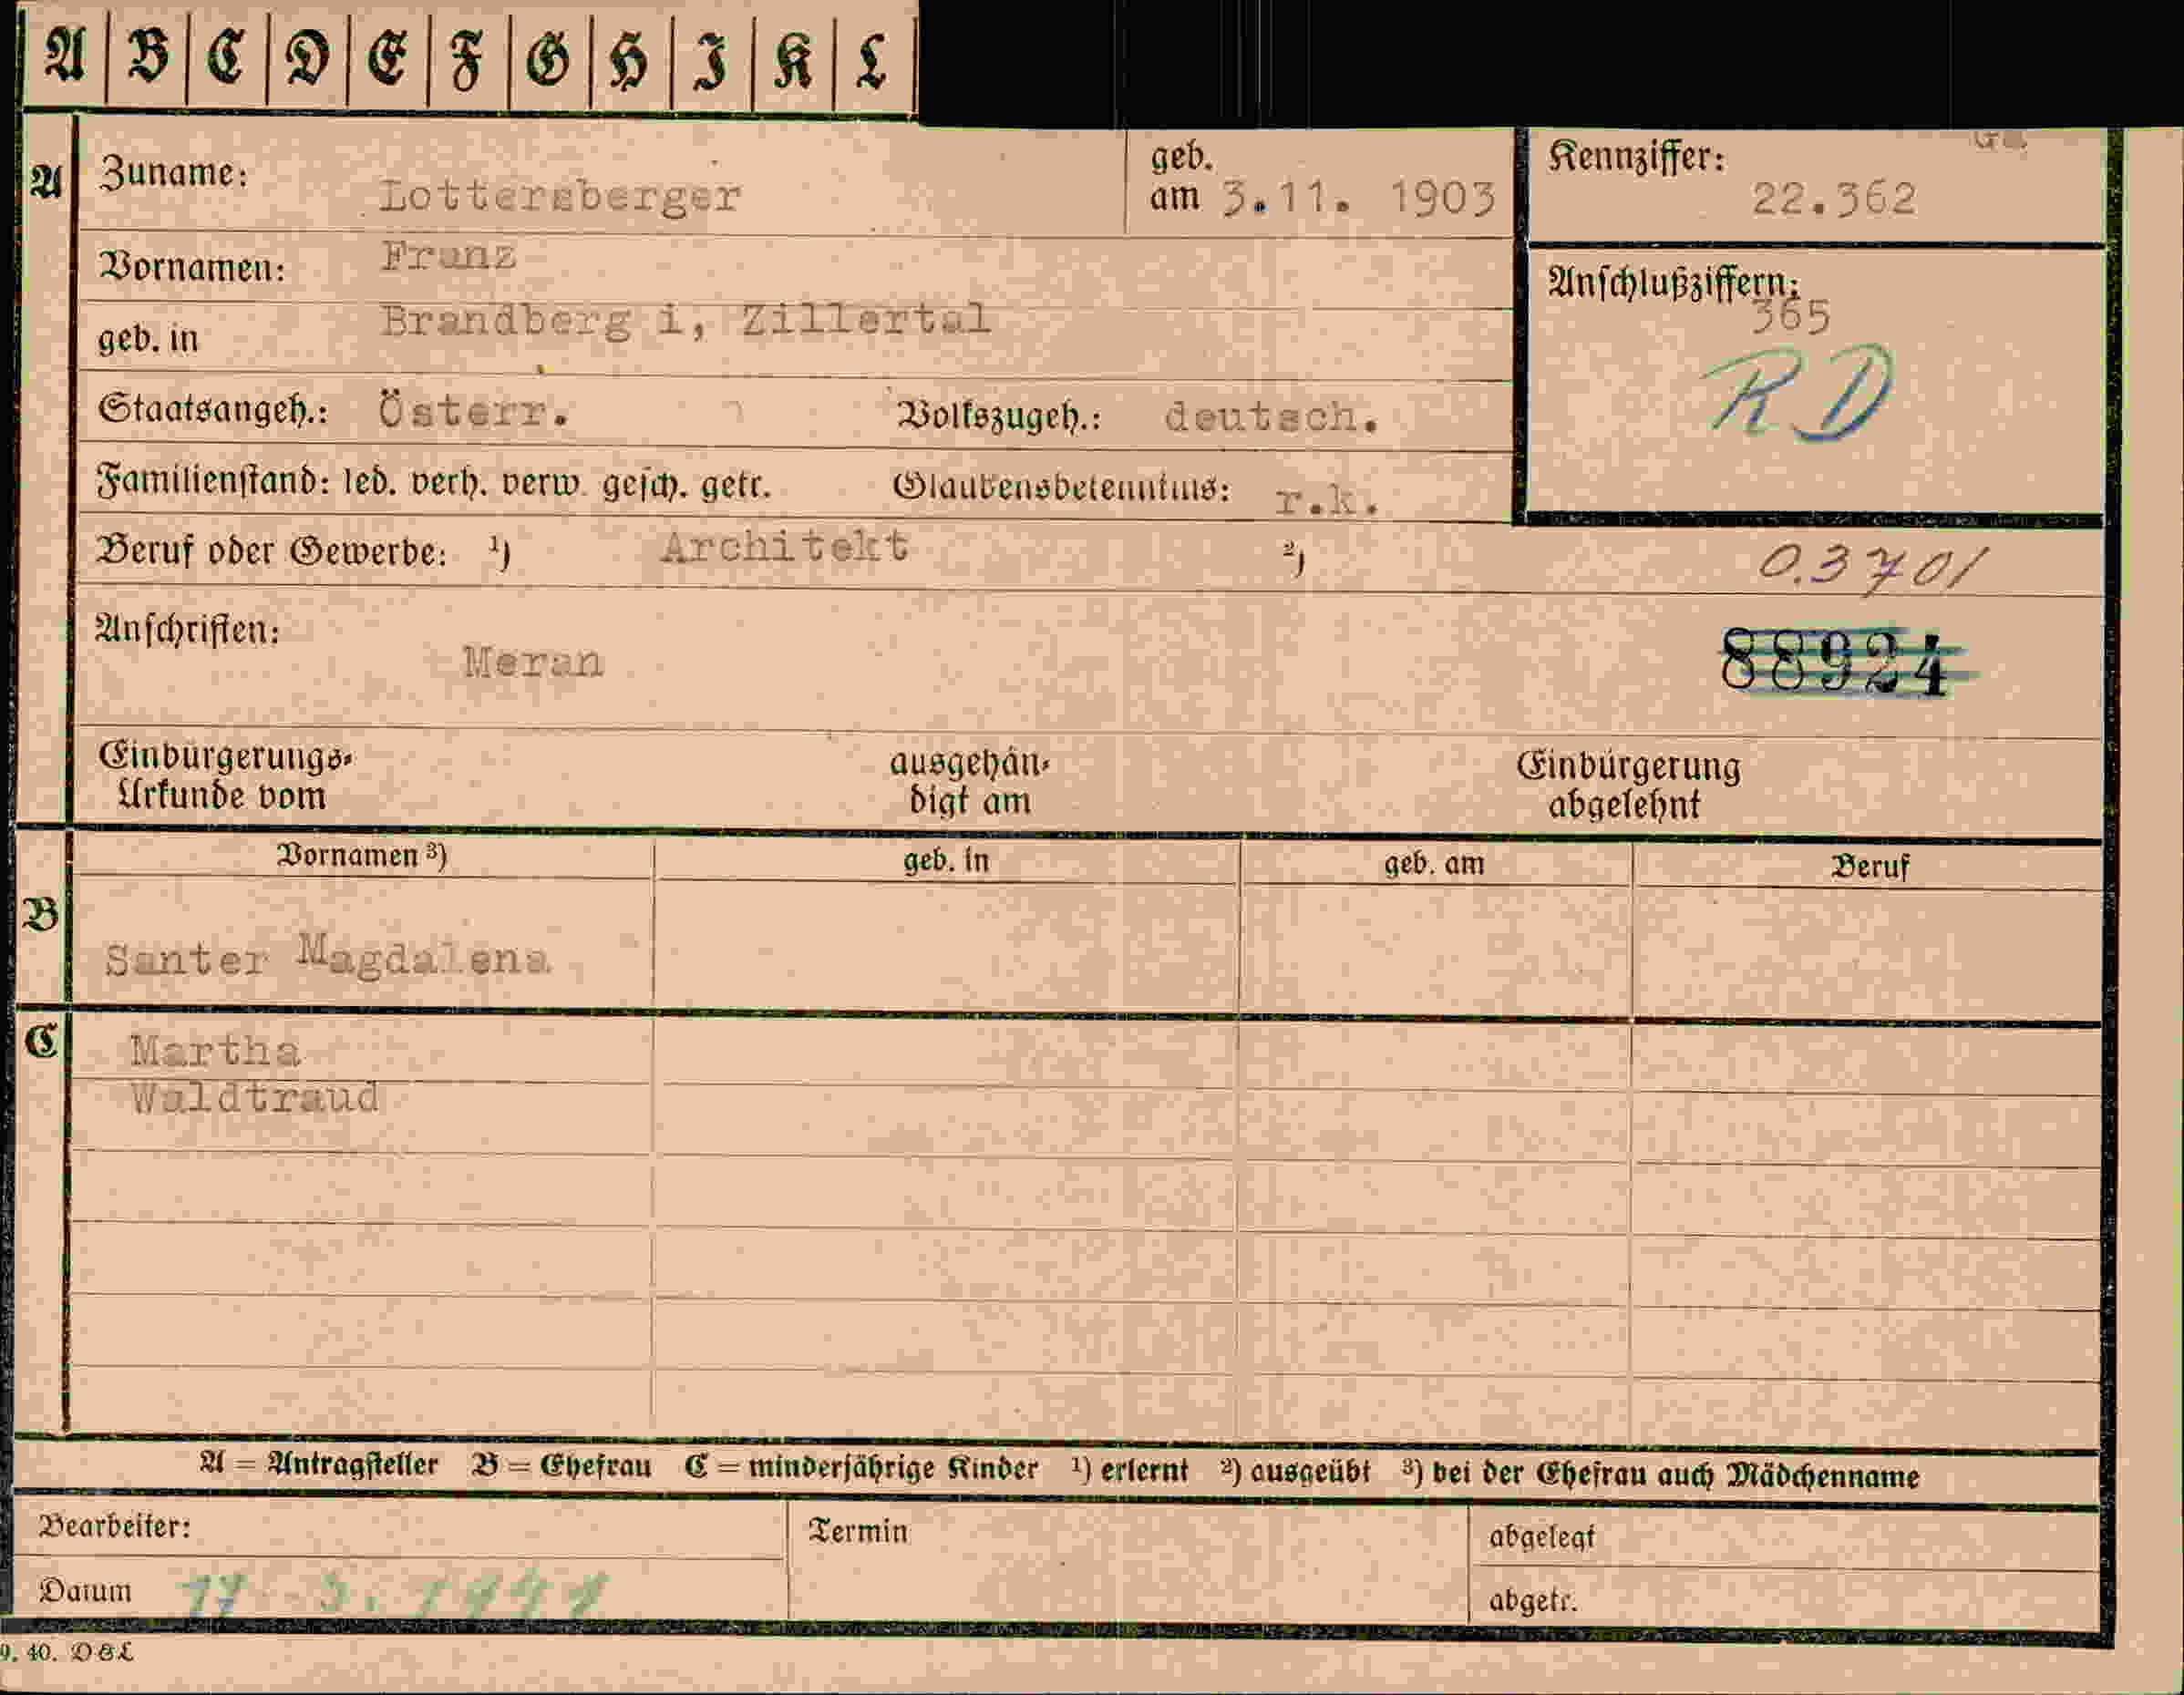 A B C D E F G H I K L
A Zuname: Lottersberger geb. am 3.11. 1903 Kennziffer: 22.362
Vornamen: Franz
geb. in Brandberg i, Zillertal Anschlußziffern: 365
R D
Staatsangeh.: Österr. Volkszugeh.: deutsch.
Familienstand: led. verh. verw. gesch. getr. Glaubensbekenntnis: r.k.
Beruf oder Gewerbe: ¹) Architekt ²) 0.3701
Anschriften: Meran 88924
Einbürgerungs-Urkunde vom ausgehändigt am Einbürgerung abgelehnt
Vornamen ³) geb. in geb. am Beruf
B Santer Magdalena
C Martha
Waldtraud
A = Antragsteller B = Ehefrau C = minderjährige Kinder ¹) erlernt ²) ausgeübt ³) bei der Ehefrau auch Mädchenname
Bearbeiter: Termin abgelegt
Datum abgetr.
9. 40. D&L